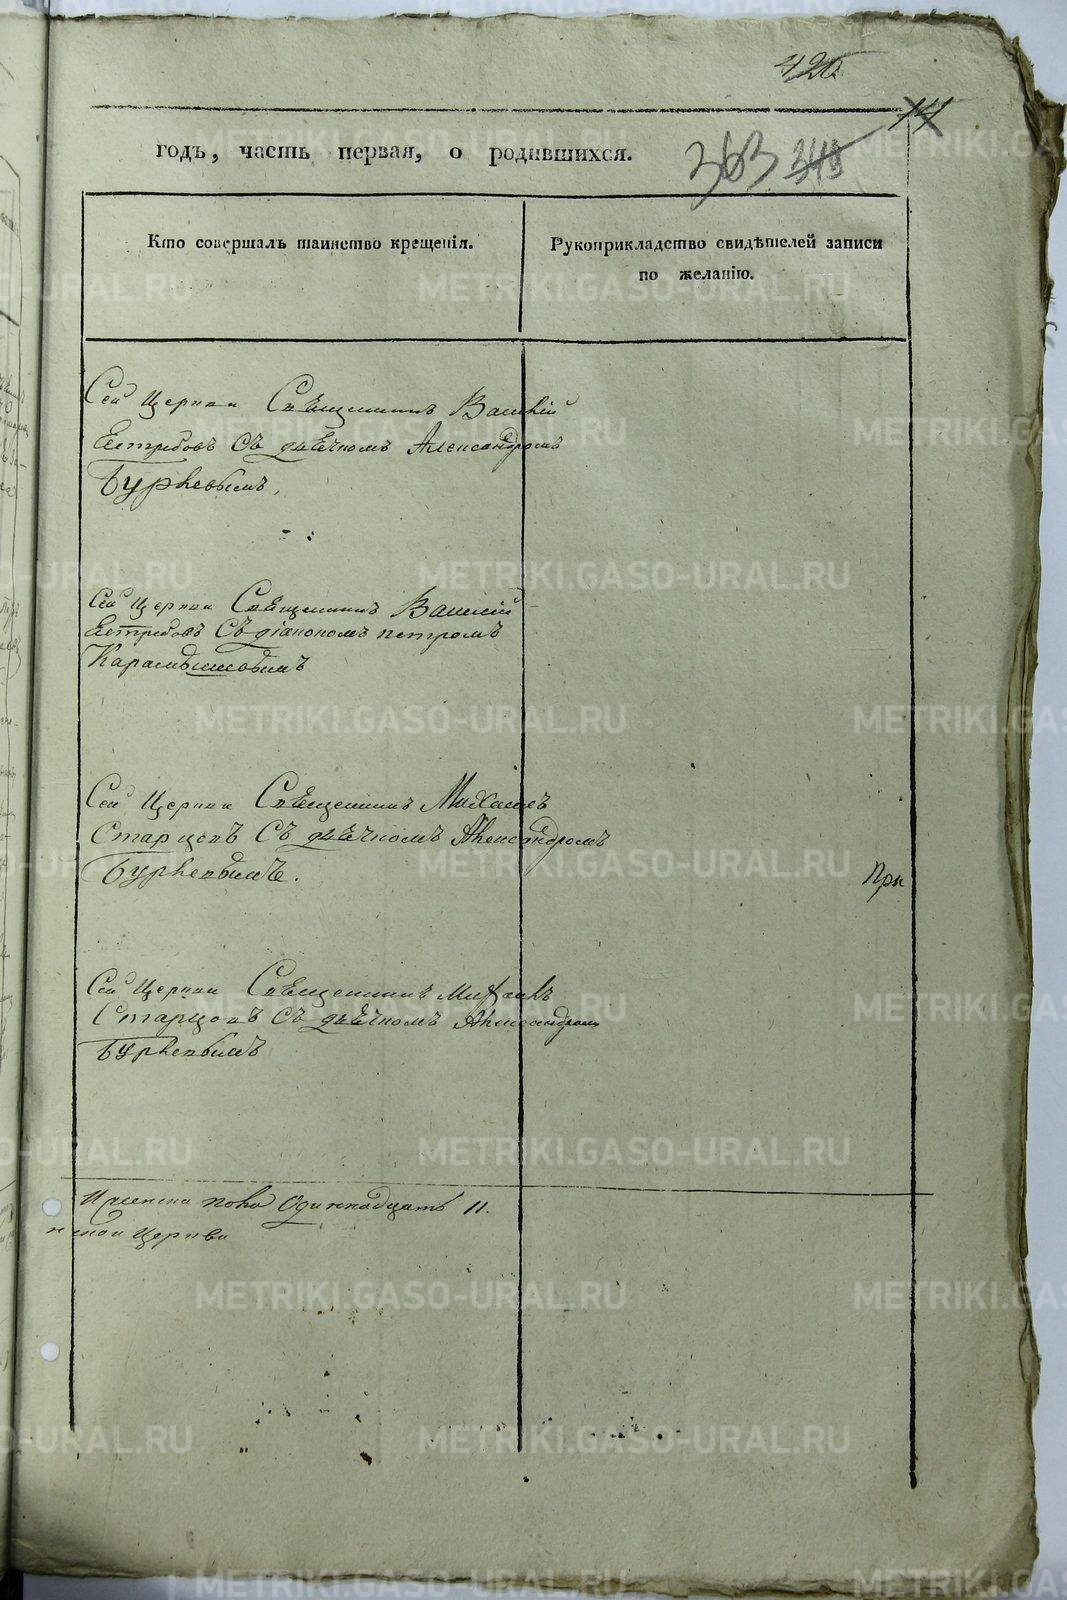 426
14
годъ, часть первая, о родившихся.
363 349
Кто совершалъ таинство крещенія.
Рукоприкладство свидѣтелей записи
по желанію.
Сей Церкви Священникъ Василій
Ястребовъ Съ дьячкомъ Александромъ
Бурлевымъ,
Сей Церкви Священникъ Василій
Ястребовъ Съ діакономъ петромъ
Карамышевымъ
Сей Церкви Священникъ Михаилъ
Старцовъ Съ дьячкомъ Александромъ
Бурлевымъ.
При
Сей Церкви Священникъ Михаилъ
Старцовъ Съ дьячкомъ Александромъ
Бурлевымъ
пола Одиннадцать 11.
Церкви
METRIKI.GASO-URAL.RU